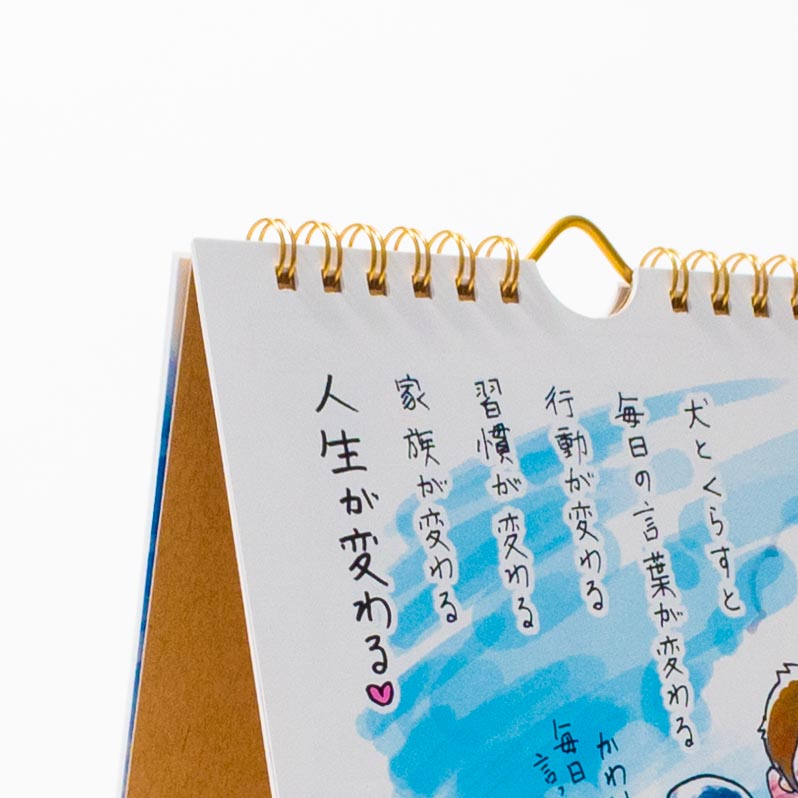 犬とくらすと
毎日の言葉が変わる
行動が変わる
習慣が変わる
家族が変わる
人生が変わる
かわ
毎日